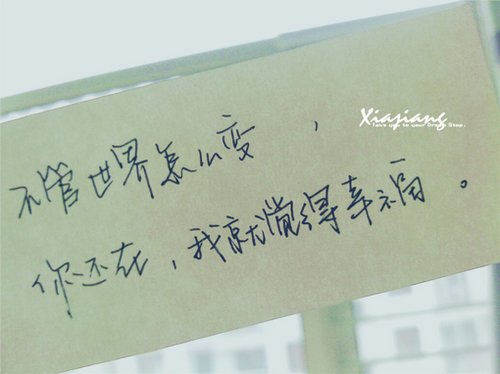 Xiasiang
Take you to your Dream Stop.
不管世界怎么变,
你还在,我就觉得幸福。